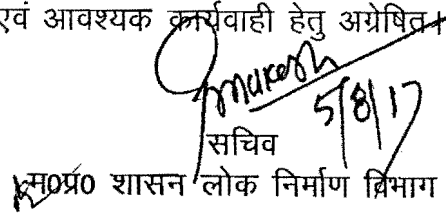 एवं आवश्यक कार्यवाही हेतु अग्रेषित।
5/8/17
सचिव
म0प्र0 शासन लोक निर्माण विभाग